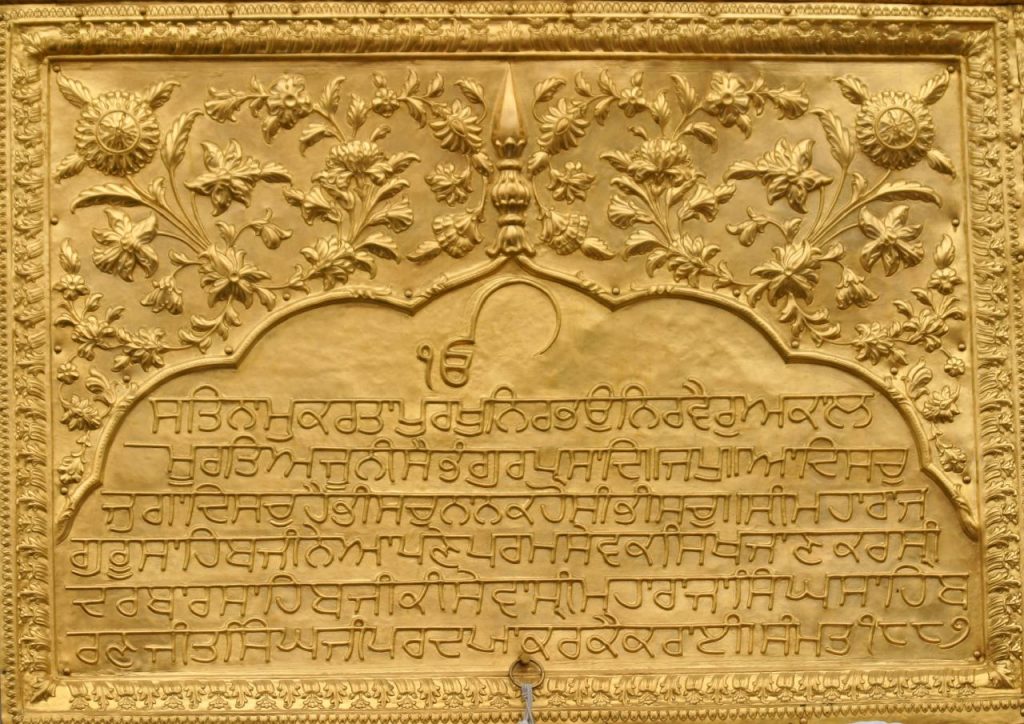 ੴ
ਸਤਿਨਾਮੁ ਕਰਤਾ ਪੁਰਖੁ ਨਿਰਭਉ ਨਿਰਵੈਰੁ ਅਕਾਲ
ਮੂਰਤਿ ਅਜੂਨੀ ਸੈਭੰ ਗੁਰਪ੍ਰਸਾਦਿ॥ ਜਪੁ॥ ਆਦਿ ਸਚੁ
ਜੁਗਾਦਿ ਸਚੁ ਹੈਭੀ ਸਚੁ ਨਾਨਕ ਹੋਸੀ ਭੀ ਸਚੁ॥ ਸ੍ਰੀ ਮਹਾਰਾਜ
ਗੁਰੂ ਸਾਹਿਬ ਜੀ ਨੇ ਆਪਣੇ ਪਰਮ ਸੇਵਕ ਸਿਖ ਜਾਣ ਕਰ ਸ੍ਰੀ
ਦਰਬਾਰ ਸਾਹਿਬ ਜੀ ਕੀ ਸੇਵਾ ਸ੍ਰੀ ਮਹਾਰਾਜਾ ਸਿੰਘ ਸਾਹਿਬ
ਰਣਜੀਤ ਸਿੰਘ ਜੀ ਪਰ ਦਯਾ ਕਰ ਕੈ ਕਰਾਈ ਸੰਮਤ ੧੮੮੭